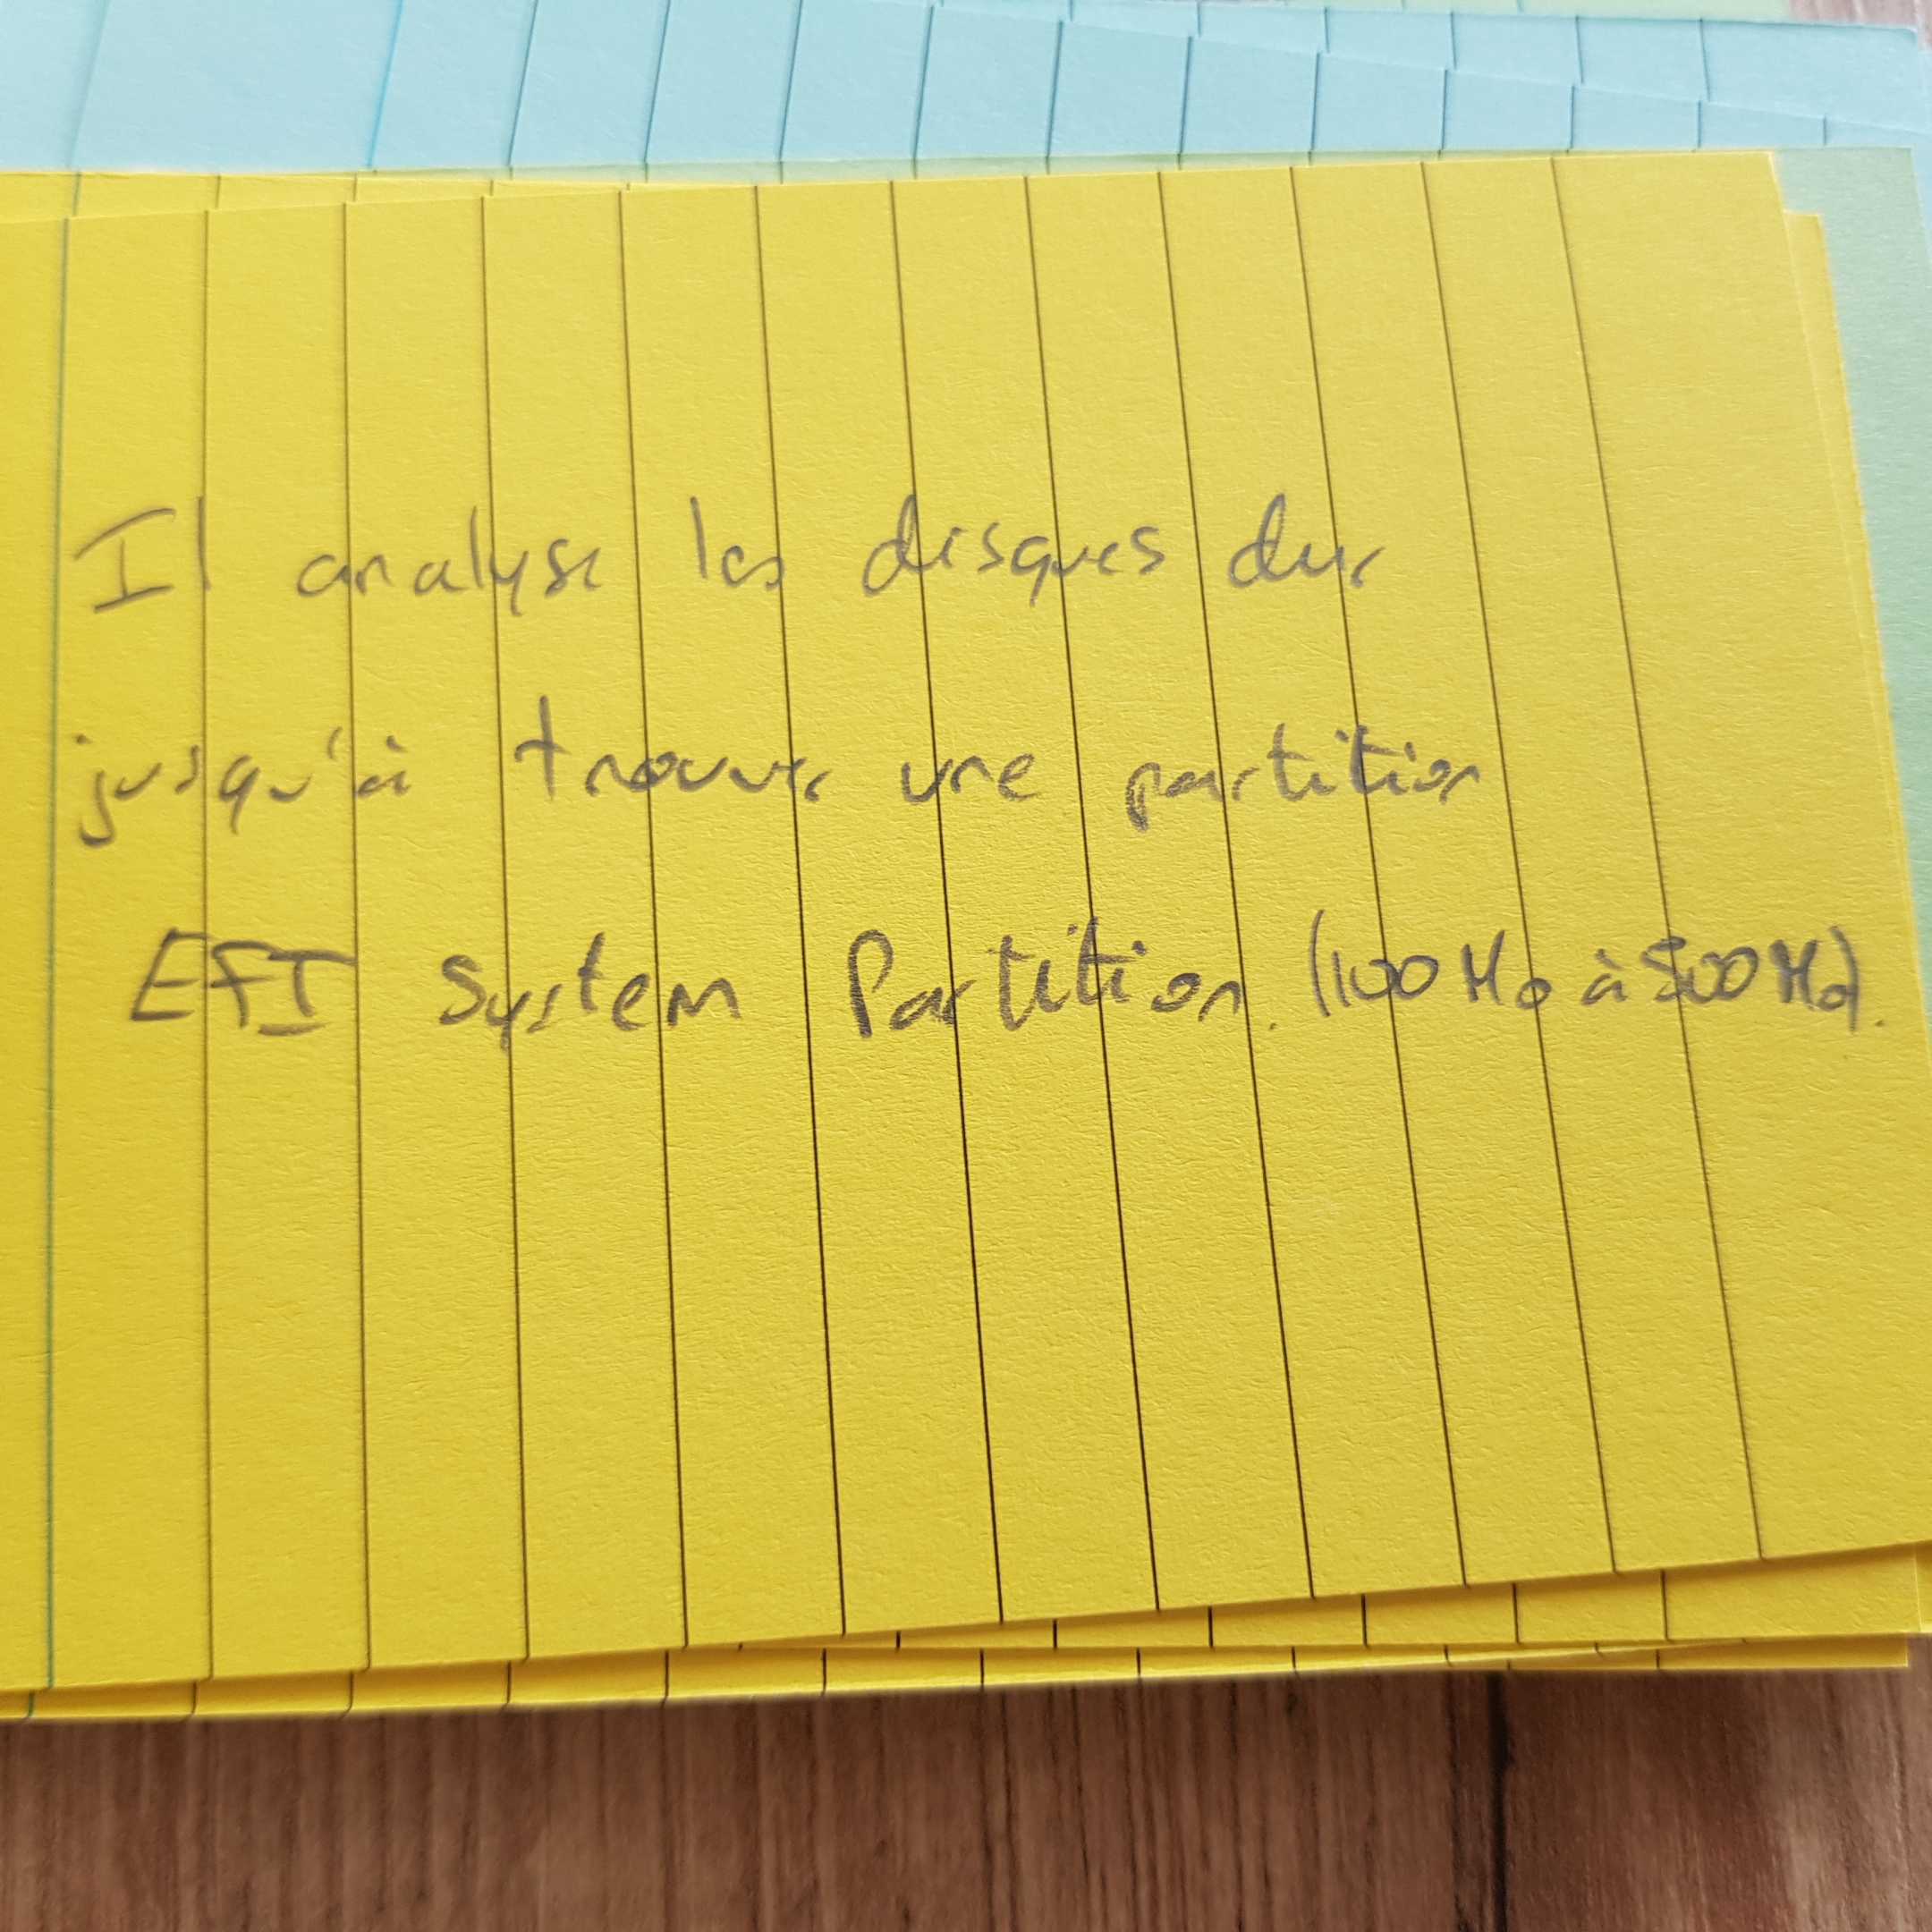 Il analyse les disques dur
jusqu'à trouver une partition
EFI System Partition. (100Mo à 500Mo).